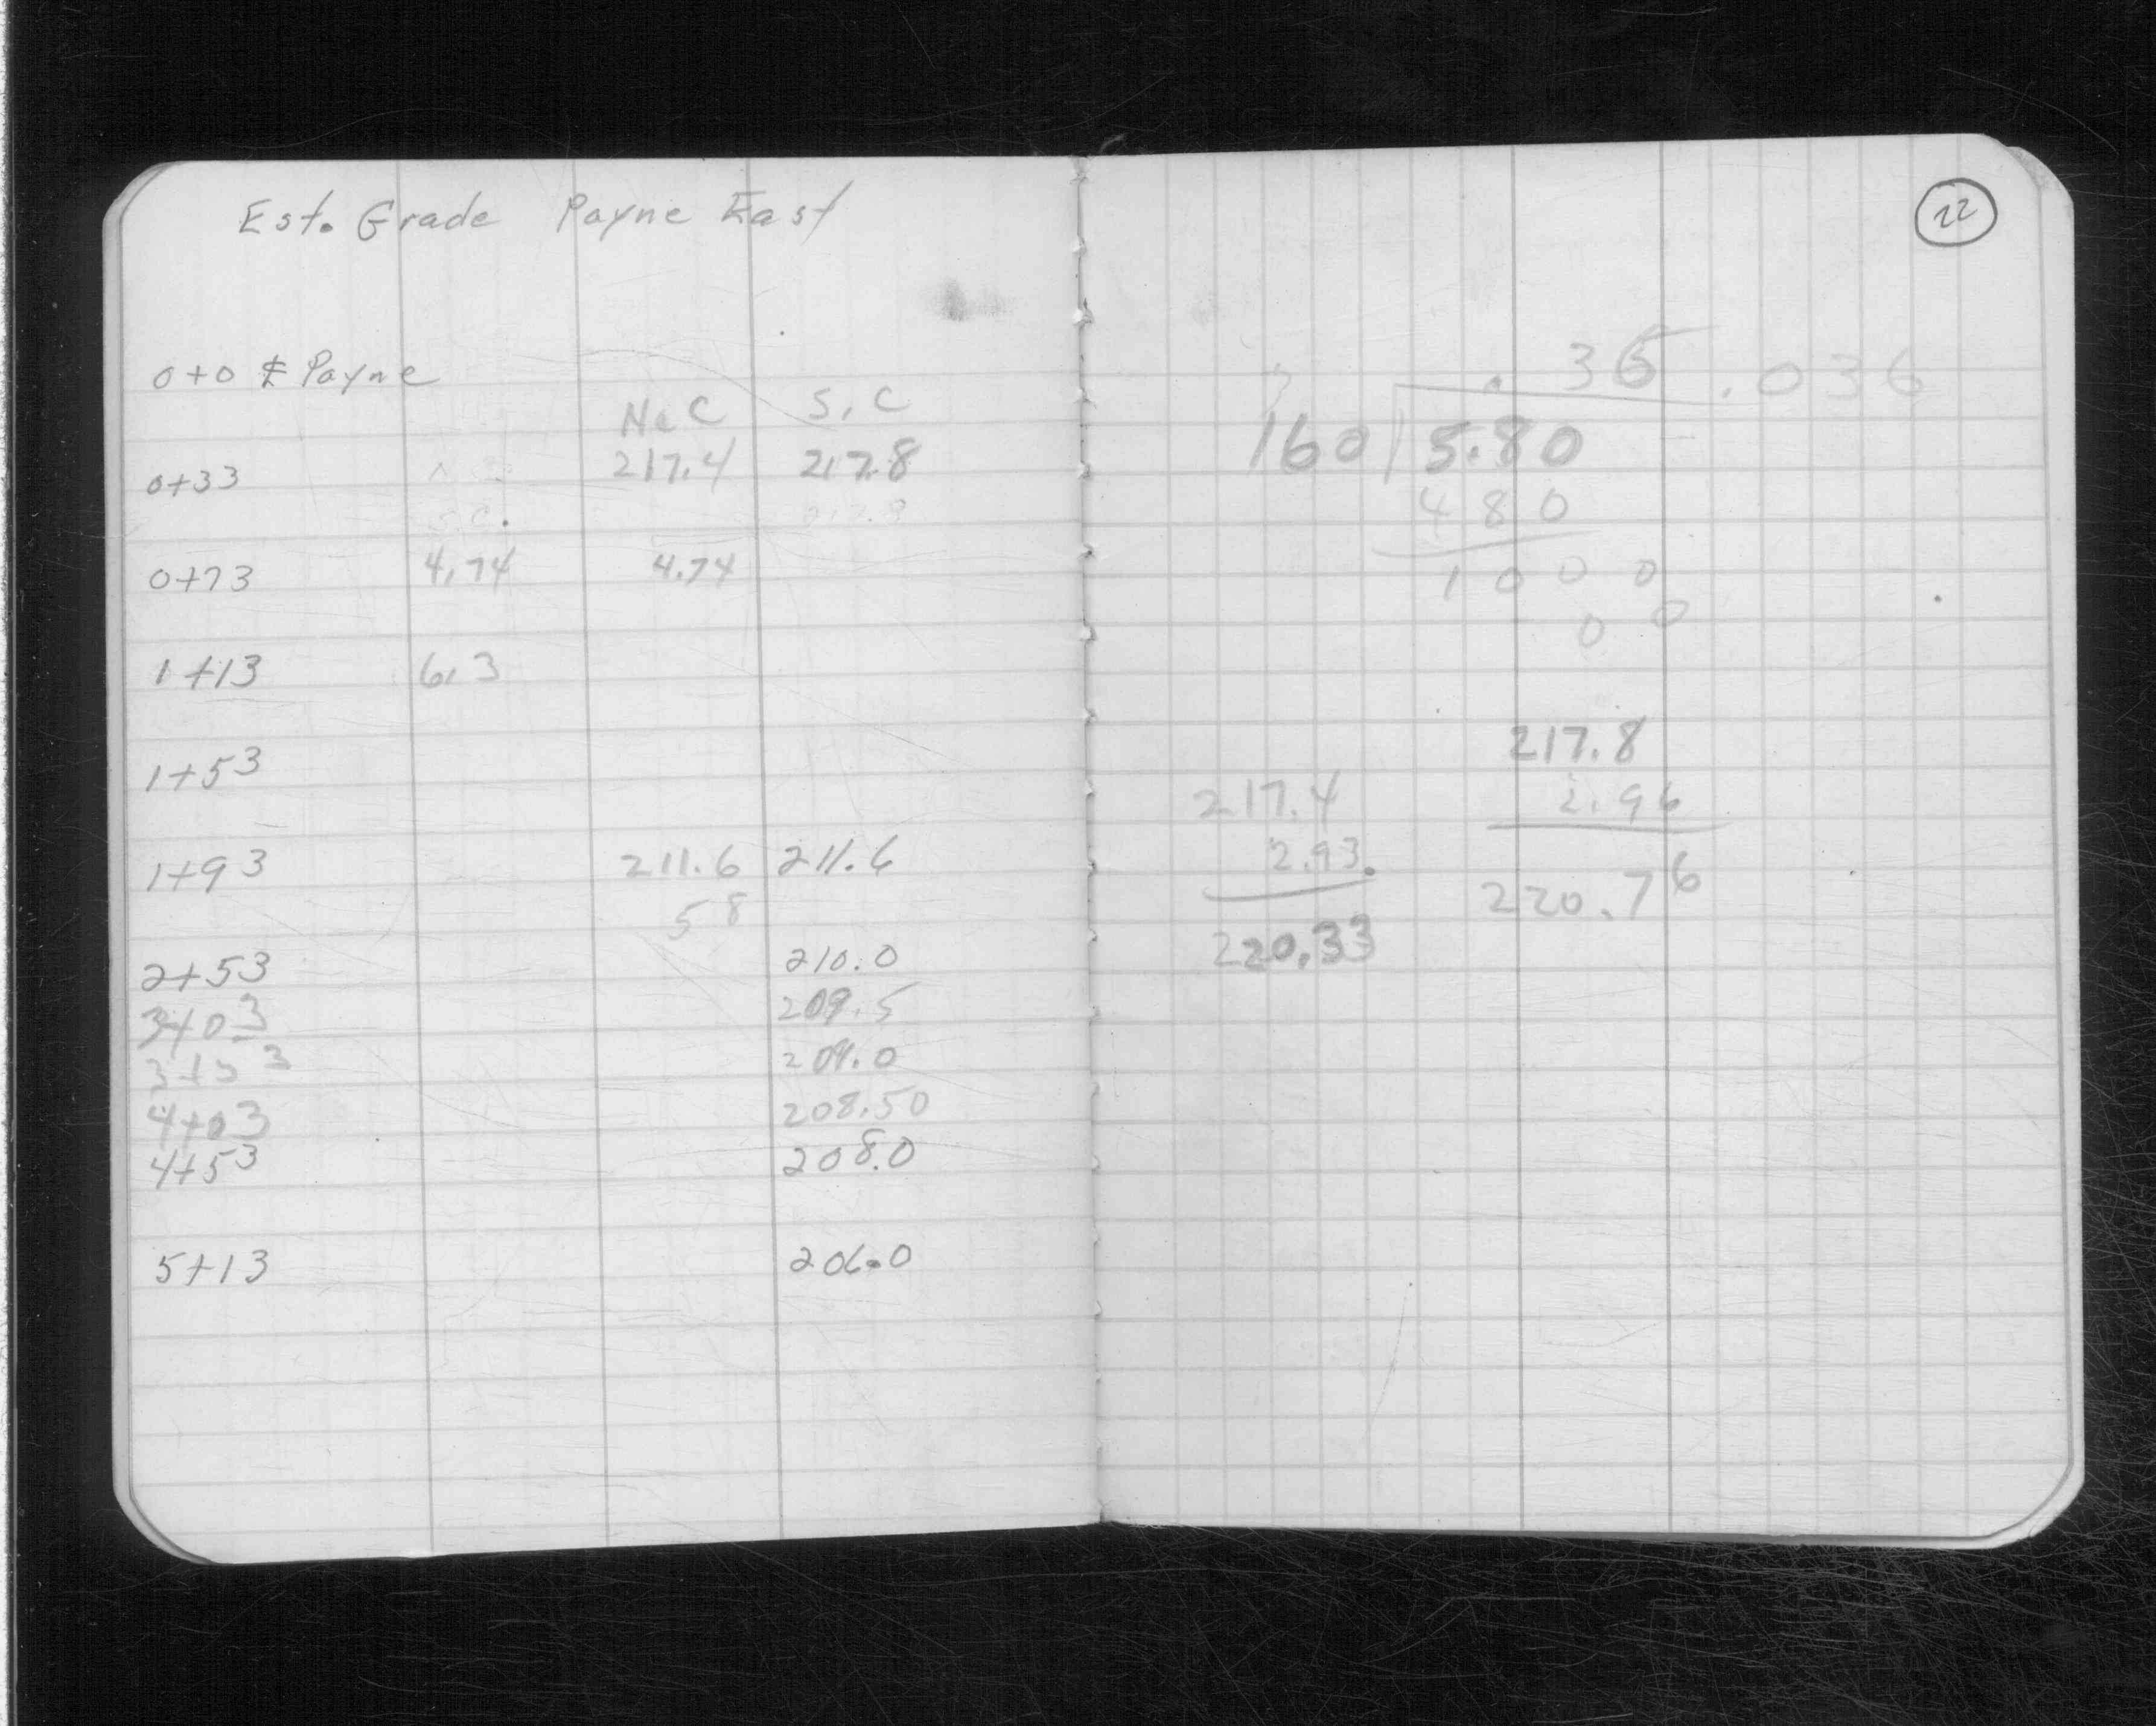 Est. Grade Payne East
0+0 ℄ Payne
N.C S.C
0+33 217.4 217.8
S.C. 217.8
0+73 4.74 4.74
1+13 6.3
1+53
1+93 211.6 211.6
58
2+53 210.0
3+03 209.5
3+53 209.0
4+03 208.50
4+53 208.0
5+13 206.0
22
.36 .036
160 5.80
480
1000
00
217.4
2.93.
220.33
217.8
2.96
220.76